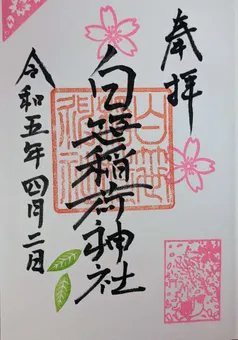 奉拝
白笹稲荷神社
令和五年四月二日